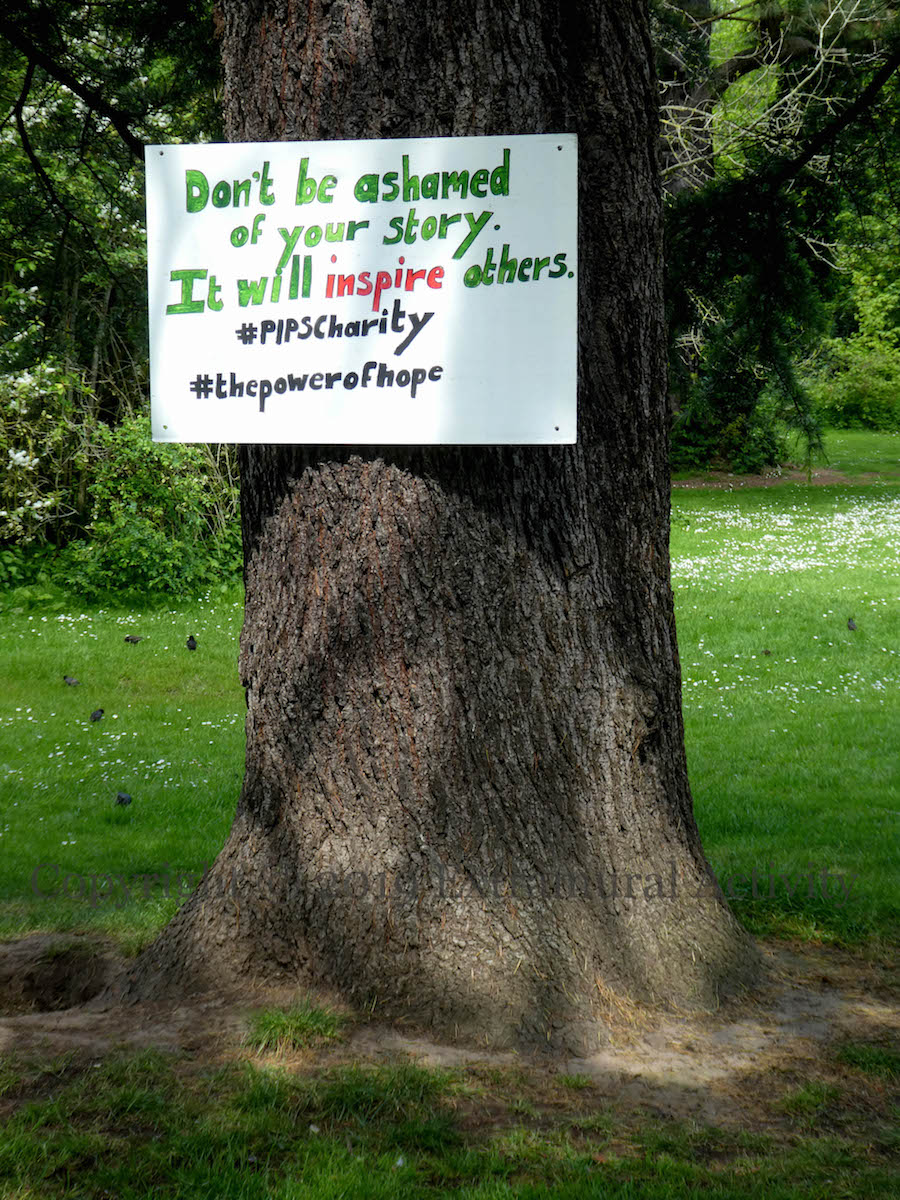 Don't be ashamed
of your story.
It will inspire others.
#PIPSCharity
#thepowerofhope
Copyright © 2019 Extramural Activity